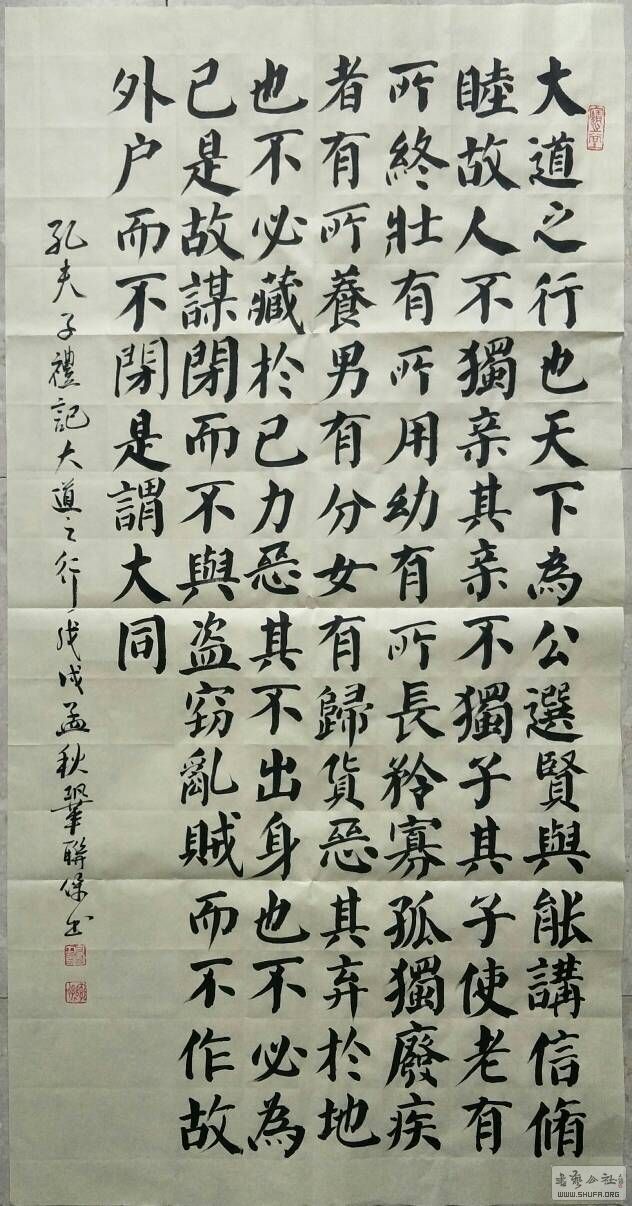 大道之行也天下為公選賢與能講信脩
睦故人不獨亲其亲不獨子其子使老有
所終壯有所用幼有所長矜寡孤獨廢疾
者有所養男有分女有歸貨恶其弃於地
也不必藏於己力恶其不出身也不必為
己是故謀閉而不與盗窃亂賊而不作故
外户而不閉是謂大同
孔夫子禮記大道之行戊戌孟秋鞏聯保书
書艺公社
WWW.SHUFA.ORG